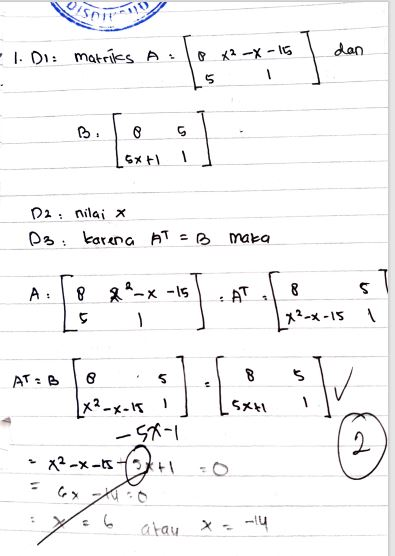 1. D1: matriks A = [8 x² - x - 15
5 1] dan
B = [8 5
5x+1 1]
D2 : nilai x
D3 : karena Aᵀ = B maka
A = [8 x² - x - 15
5 1] = Aᵀ = [8 5
x² - x - 15 1]
Aᵀ = B [8 5
x² - x - 15 1] = [8 5
5x+1 1] ✓
- 5x - 1
2
= x² - x - 15 - 5x + 1 = 0
= 6x - 14 = 0
= x = 6 atau x = -14